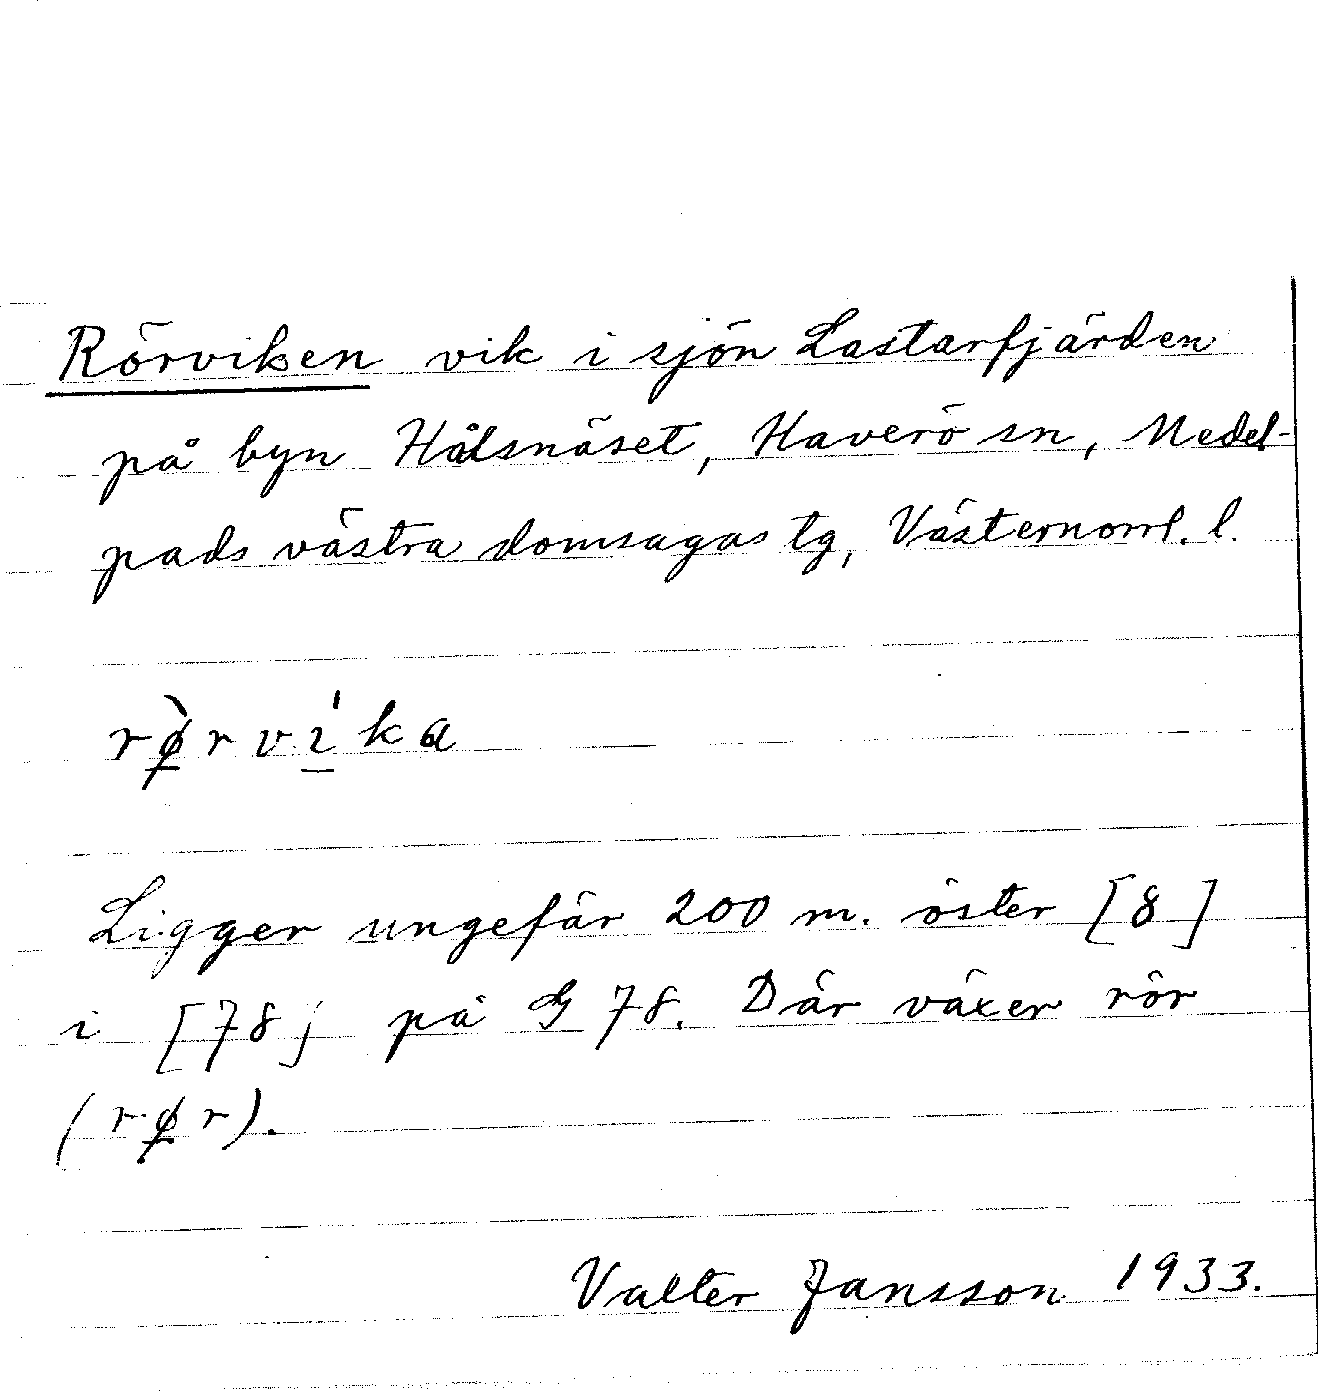 Rörviken vik i sjön Lastarfjärden
på byn Hålsnäset, Haverö sn, Medel-
pads västra domsagas tg, Västernorrl. l.
rø̀rvíka
Ligger ungefär 200 m. öster [8]
i [78] på G 78. Där växer rör
(rør).
Valter Jansson 1933.